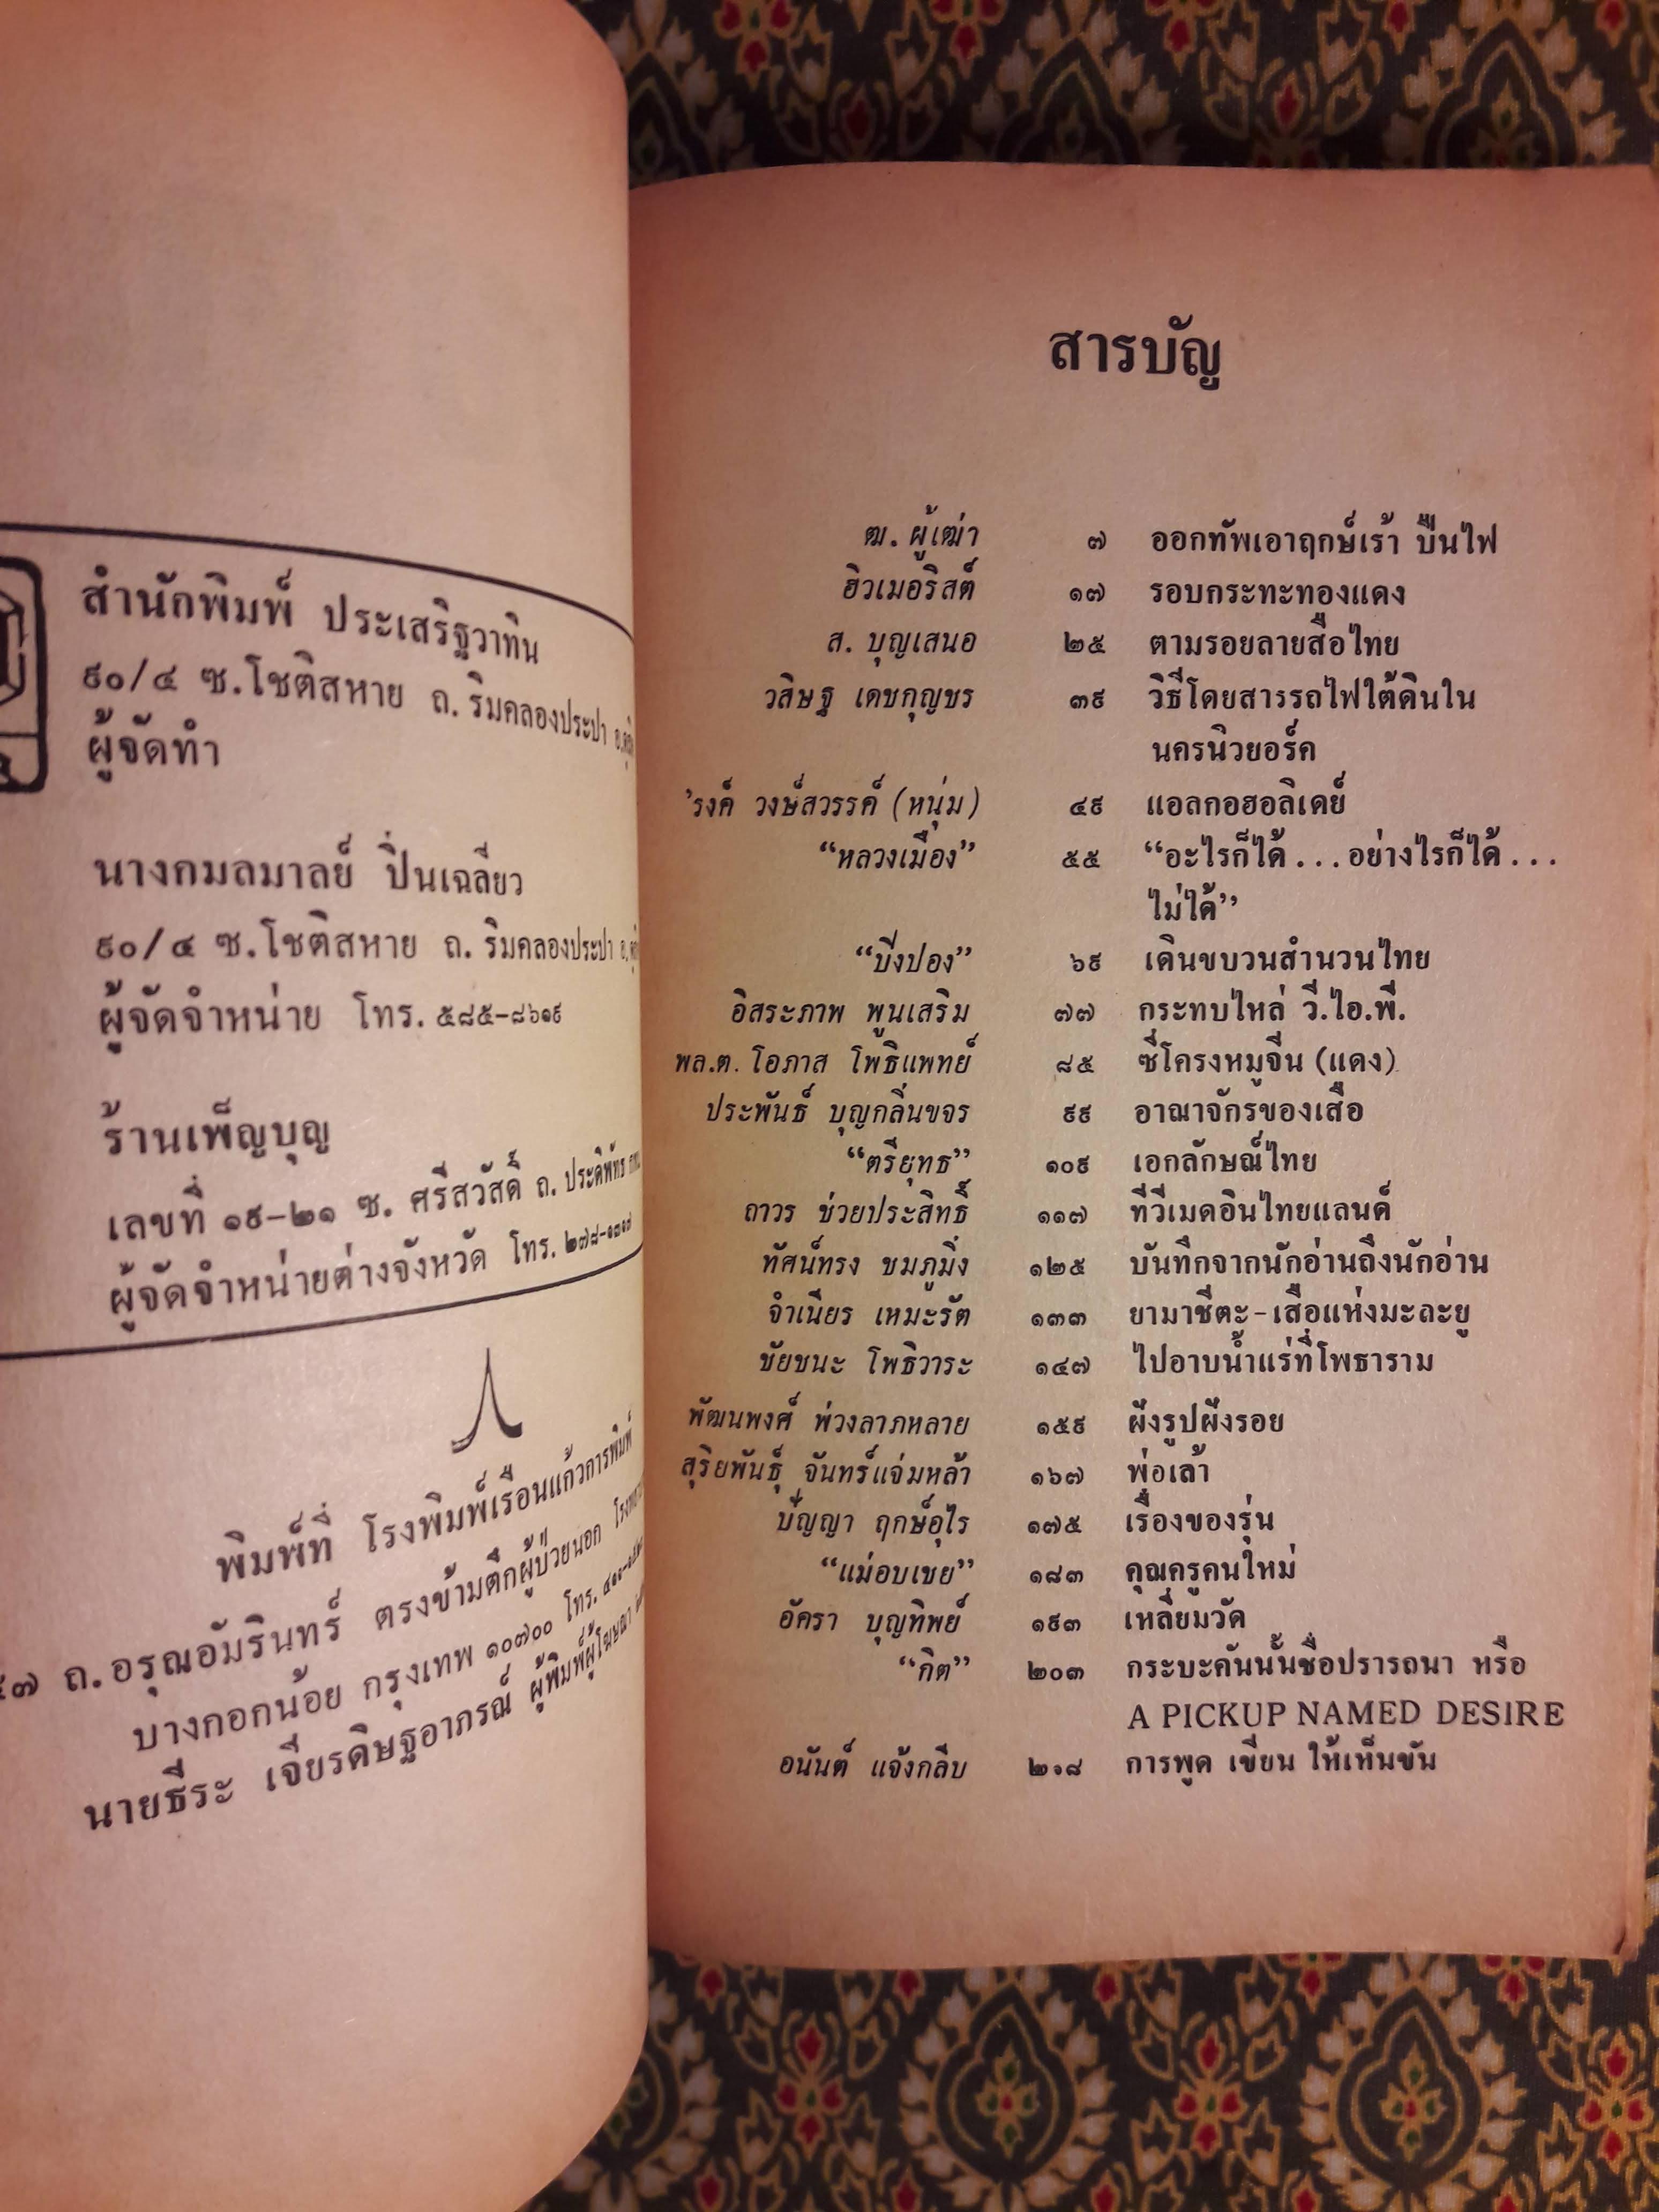 สำนักพิมพ์ ประเสริฐวาทิน
๙๐/๔ ซ.โชติสหาย ถ. ริมคลองประปา
ผู้จัดทำ
นางกมลมาลย์ ปิ่นเฉลียว
๙๐/๔ ซ.โชติสหาย ถ. ริมคลองประปา
ผู้จัดจำหน่าย โทร. ๕๘๕-๘๖๑๙
ร้านเพ็ญบุญ
เลขที่ ๑๙-๒๑ ซ. ศรีสวัสดิ์ ถ. ประดิพัทธ
ผู้จัดจำหน่ายต่างจังหวัด โทร. ๒๗๘-๑๓๑๗
พิมพ์ที่ โรงพิมพ์เรือนแก้วการพิมพ์
ถ.อรุณอัมรินทร์ ตรงข้ามตึกผู้ป่วยนอก
บางกอกน้อย กรุงเทพ ๑๐๗๐๐ โทร.
นายธีระ เจียรดิษฐอาภรณ์ ผู้พิมพ์ผู้โฆษณา
สารบัญ
ฒ. ผู้เฒ่า ๗ ออกทัพเอาฤกษ์เร้า ปืนไฟ
ฮิวเมอริสต์ ๑๗ รอบกระทะทองแดง
ส. บุญเสนอ ๒๕ ตามรอยลายสือไทย
วสิษฐ เดชกุญชร ๓๙ วิธีโดยสารรถไฟใต้ดินใน
นครนิวยอร์ค
'รงค์ วงษ์สวรรค์ (หนุ่ม) ๔๙ แอลกอฮอลิเดย์
“หลวงเมือง” ๕๕ “อะไรก็ได้ ... อย่างไรก็ได้ ...
ไม่ได้”
“บึ่งปอง” ๖๙ เดินขบวนสำนวนไทย
อิสระภาพ พูนเสริม ๗๗ กระทบไหล่ วี.ไอ.พี.
พล.ต. โอภาส โพธิแพทย์ ๘๕ ซี่โครงหมูจีน (แดง)
ประพันธ์ บุญกลิ่นขจร ๙๙ อาณาจักรของเสือ
“ตรียุทธ” ๑๐๙ เอกลักษณ์ไทย
ถาวร ช่วยประสิทธิ์ ๑๑๗ ทีวีเมดอินไทยแลนด์
ทัศน์ทรง ชมภูมิ่ง ๑๒๕ บันทึกจากนักอ่านถึงนักอ่าน
จำเนียร เหมะรัต ๑๓๓ ยามาชีตะ - เสือแห่งมะละยู
ชัยชนะ โพธิวาระ ๑๔๗ ไปอาบน้ำแร่ที่โพธาราม
พัฒนพงศ์ พ่วงลาภหลาย ๑๕๙ ฝังรูปฝังรอย
สุริยพันธุ์ จันทร์แจ่มหล้า ๑๖๗ พ่อเล้า
ปัญญา ฤกษ์อุไร ๑๗๕ เรื่องของรุ่น
“แม่อบเชย” ๑๘๓ คุณครูคนใหม่
อัครา บุญทิพย์ ๑๙๓ เหลี่ยมวัด
“กิต” ๒๐๓ กระบะคันนั้นชื่อปรารถนา หรือ
A PICKUP NAMED DESIRE
อนันต์ แจ้งกลีบ ๒๑๘ การพูด เขียน ให้เห็นขัน